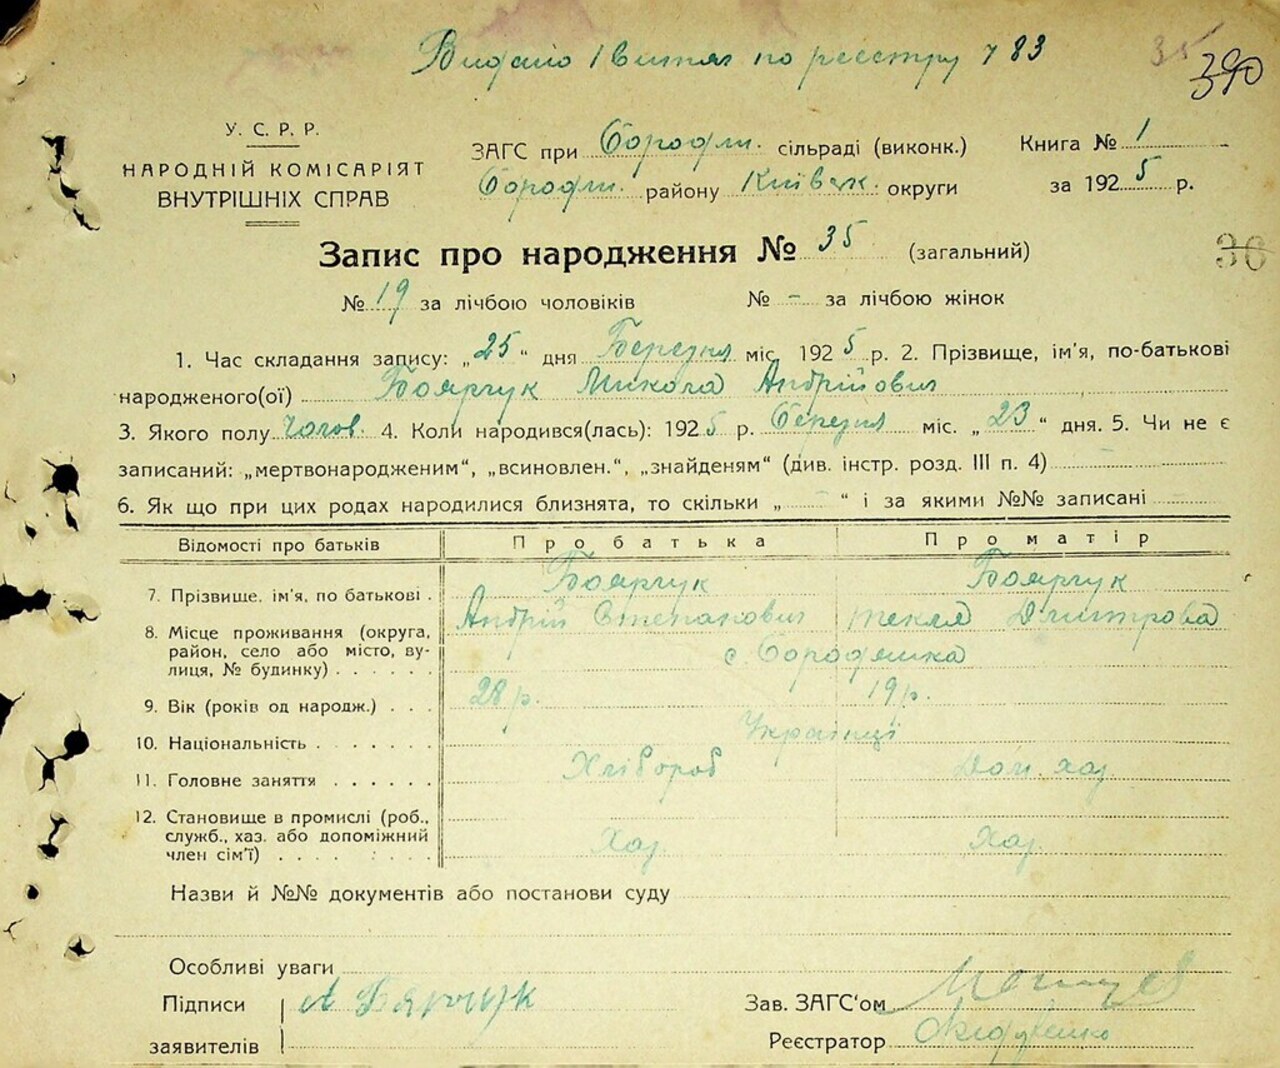 Видано 1 витяг по реєстру № 83
35 390
У. С. Р. Р.
НАРОДНІЙ КОМІСАРІЯТ
ВНУТРІШНІХ СПРАВ
ЗАГС при Бородян. сільраді (виконк.) Книга № 1
Бородян. району Київськ. округи за 1925 р.
Запис про народження № 35 (загальний)
36
№ 19 за лічбою чоловіків № - за лічбою жінок
1. Час складання запису: „25“ дня Березня міс. 1925 р. 2. Прізвище, ім'я, по-батькові
народженого(ої) Боярчук Микола Андрійович
3. Якого полу чолов. 4. Коли народився(лась): 1925 р. березня міс. „23“ дня. 5. Чи не є
записаний: „мертвонародженим“, „всиновлен.“, „знайденям“ (див. інстр. розд. III п. 4)
6. Як що при цих родах народилися близнята, то скільки „ “ і за якими №№ записані
Відомості про батьків Про батька Про матір
7. Прізвище, ім'я, по батькові . Боярчук Боярчук
Андрій Степанович Текля Дмитрова
8. Місце проживання (округа,
район, село або місто, ву-
лиця, № будинку) . . . . . . с. Бородянка
9. Вік (років од народж.) . . . 28 р. 19 р.
10. Національність . . . . . . . Українці
11. Головне заняття . . . . . . Хлібороб Дом. хаз.
12. Становище в промислі (роб.,
служб., хаз. або допоміжний
член сім'ї) . . . . . . . . Хаз. Хаз.
Назви й №№ документів або постанови суду
Особливі уваги
Підписи А Баярчук Зав. ЗАГС'ом
заявителів Реєстратор